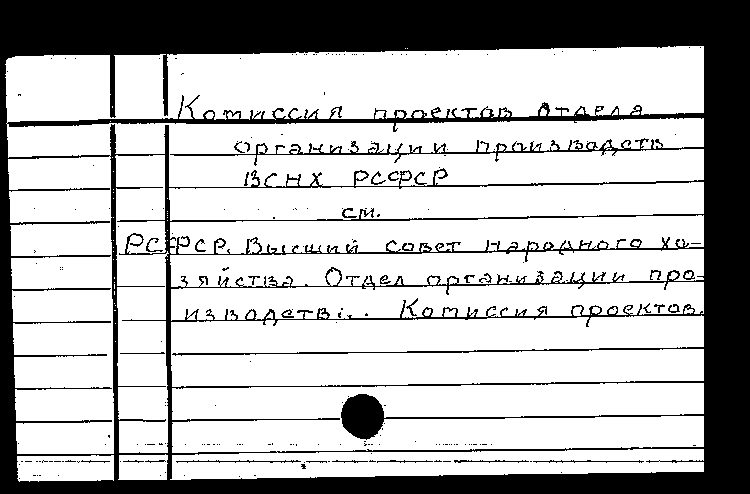 Комиссия проектов Отдела
организации производств
ВСНХ РСФСР
см.
РСФСР. Высший совет народного хо-
зяйства. Отдел организации про-
изводств... Комиссия проектов.